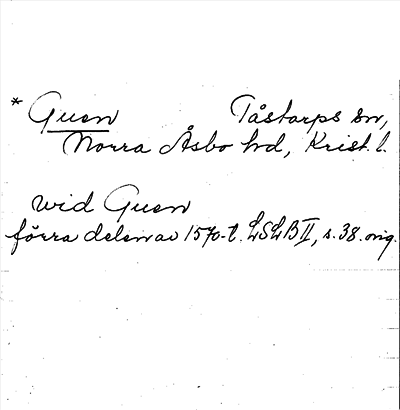 * Guen Tåstarps sn,
Norra Åsbo hd, Krist. l.
wid Guen
förra delen av 1570-t. LSLB II, s. 38. orig.